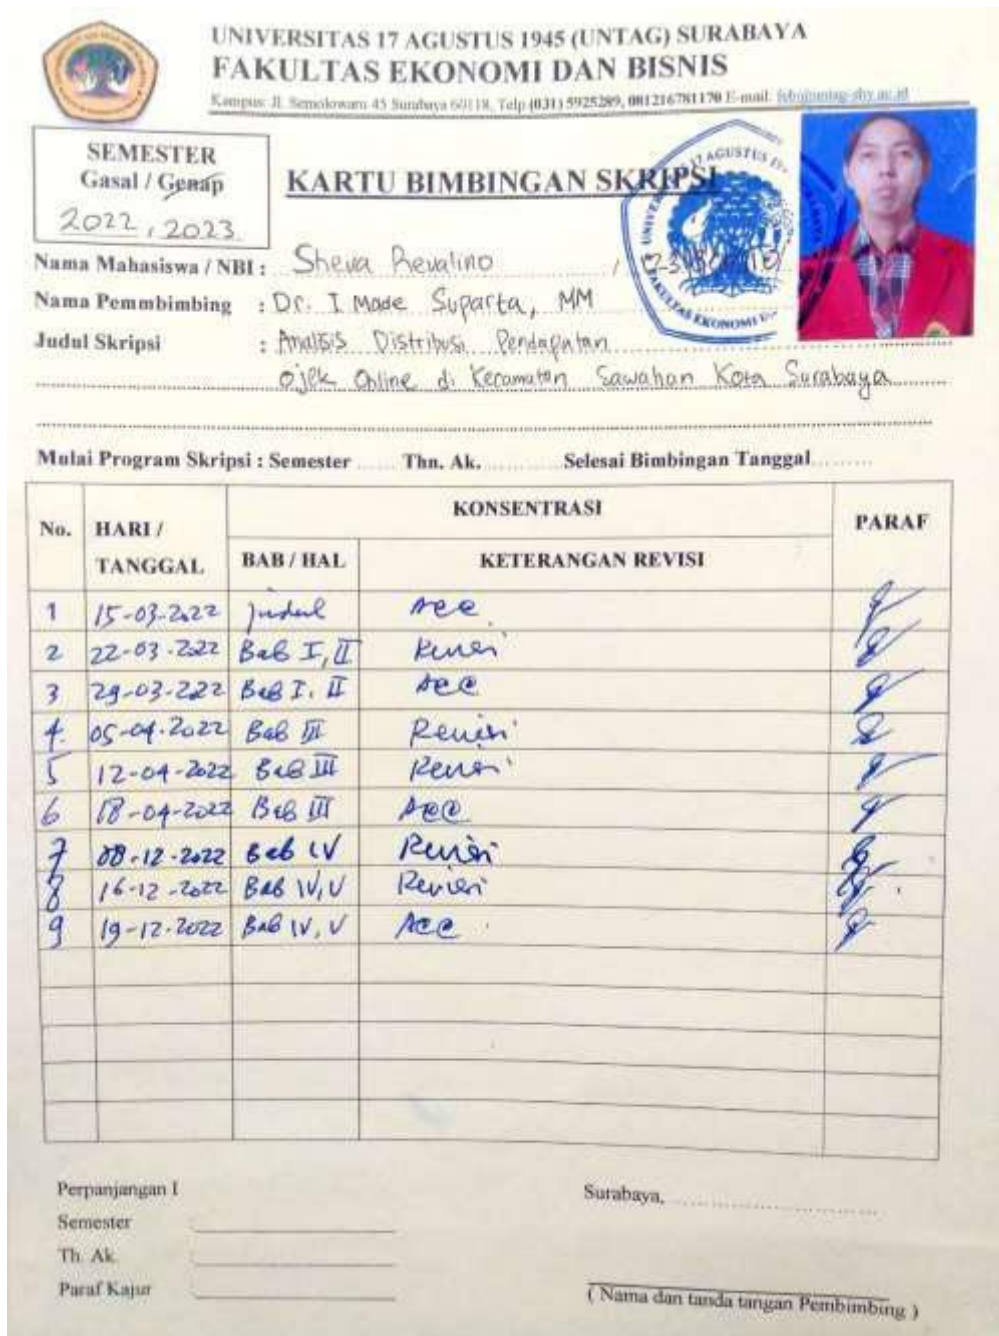 UNIVERSITAS 17 AGUSTUS 1945 (UNTAG) SURABAYA
FAKULTAS EKONOMI DAN BISNIS
Kampus: Jl. Semolowaru 45 Surabaya 60118, Telp (031) 5925289, 081216781170 E-mail: feb@untag-sby.ac.id
SEMESTER
Gasal / Genap
2022, 2023
KARTU BIMBINGAN SKRIPSI
Nama Mahasiswa / NBI : Sheva Revalino /
Nama Pemmbimbing : Dr. I Made Suparta, MM
Judul Skripsi : Analisis Distribusi Pendapatan
Ojek Online di Kecamatan Sawahan Kota Surabaya
Mulai Program Skripsi : Semester ...... Thn. Ak. ............ Selesai Bimbingan Tanggal.........
No. HARI / TANGGAL KONSENTRASI PARAF
BAB / HAL KETERANGAN REVISI
1 15-03-2022 Judul Acc
2 22-03-2022 Bab I, II Revisi
3 29-03-222 Bab I. II Acc
4. 05-04-2022 Bab III Revisi
5 12-04-2022 Bab III Revisi
6 18-04-2022 Bab III Acc
7 08-12-2022 Bab IV Revisi
8 16-12-2022 Bab IV, V Revisi
9 19-12-2022 Bab IV, V Acc
Perpanjangan I
Surabaya,
Semester :
Th. Ak. :
Paraf Kajur :
( Nama dan tanda tangan Pembimbing )